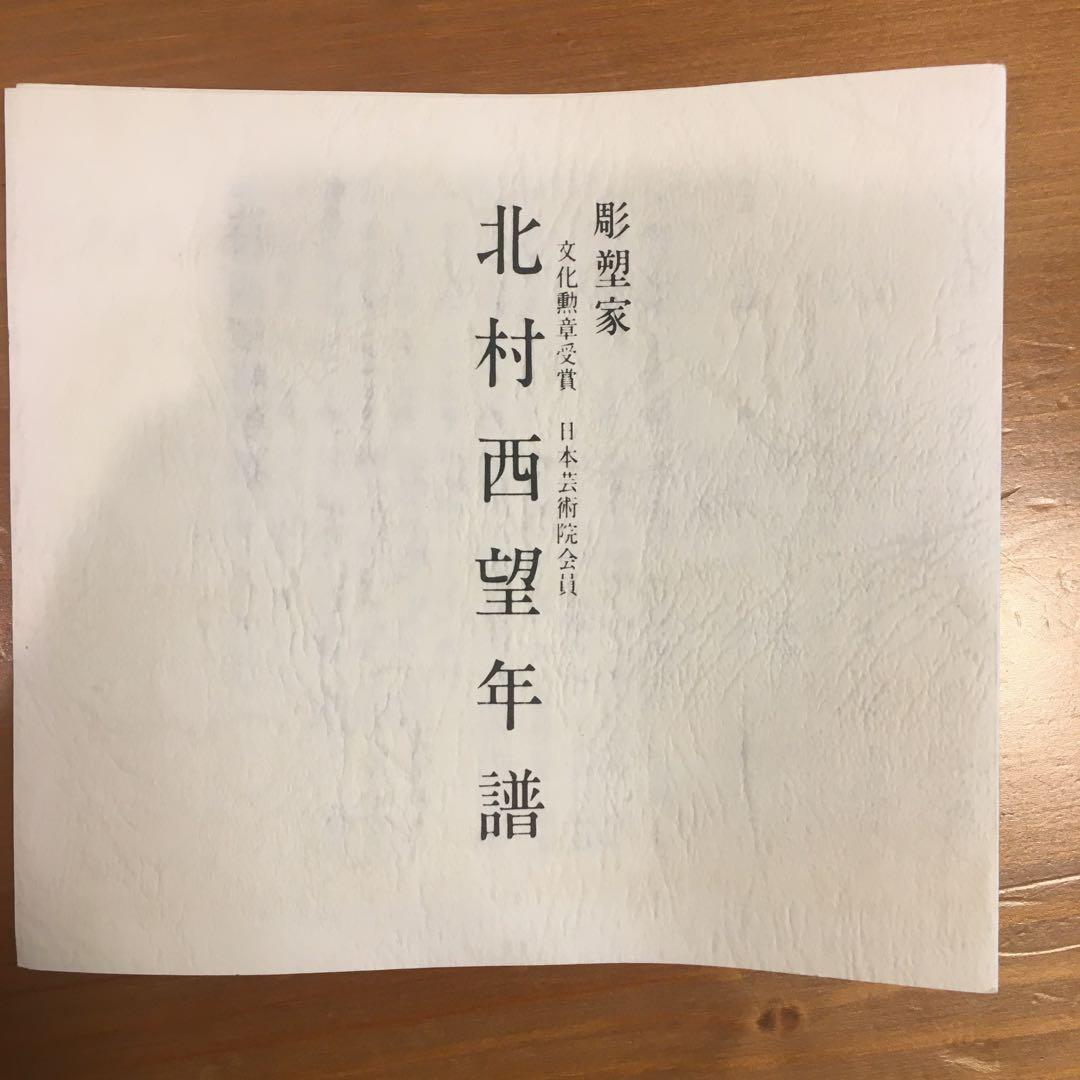 彫塑家
文化勲章受賞　日本芸術院会員
北村西望年譜